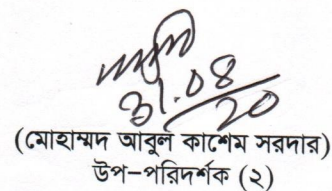 31.08
20
(মোহাম্মদ আবুল কাশেম সরদার)
উপ-পরিদর্শক (২)